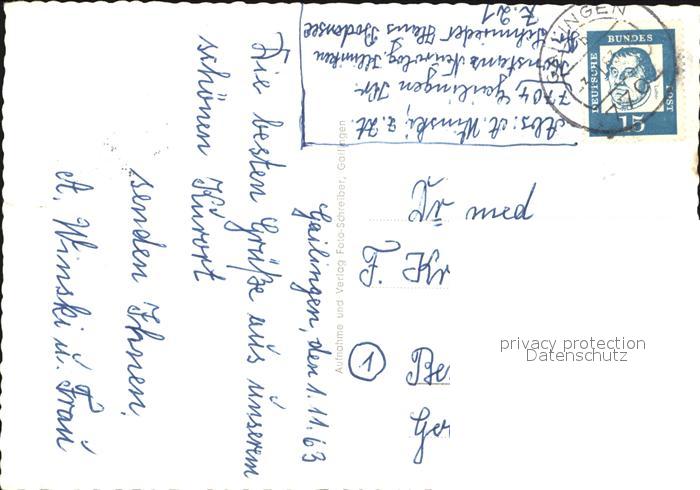 Gailingen, den 1.11.63
Die besten Grüße aus unserem
schönen Kurort
senden Ihnen
A. Winski u. Frau
Abs: A. Winski, z. Zt.
7704 Gailingen Kr.
Konstanz Neurolog. Kliniken
Schmieder Haus Bodensee
Z. 21
Aufnahme und Verlag Foto-Schreiber, Gailingen
GAILINGEN
DEUTSCHE
BUNDES
POST
15
Dr med
F. Kr
1
Be
Ger
privacy protection
Datenschutz